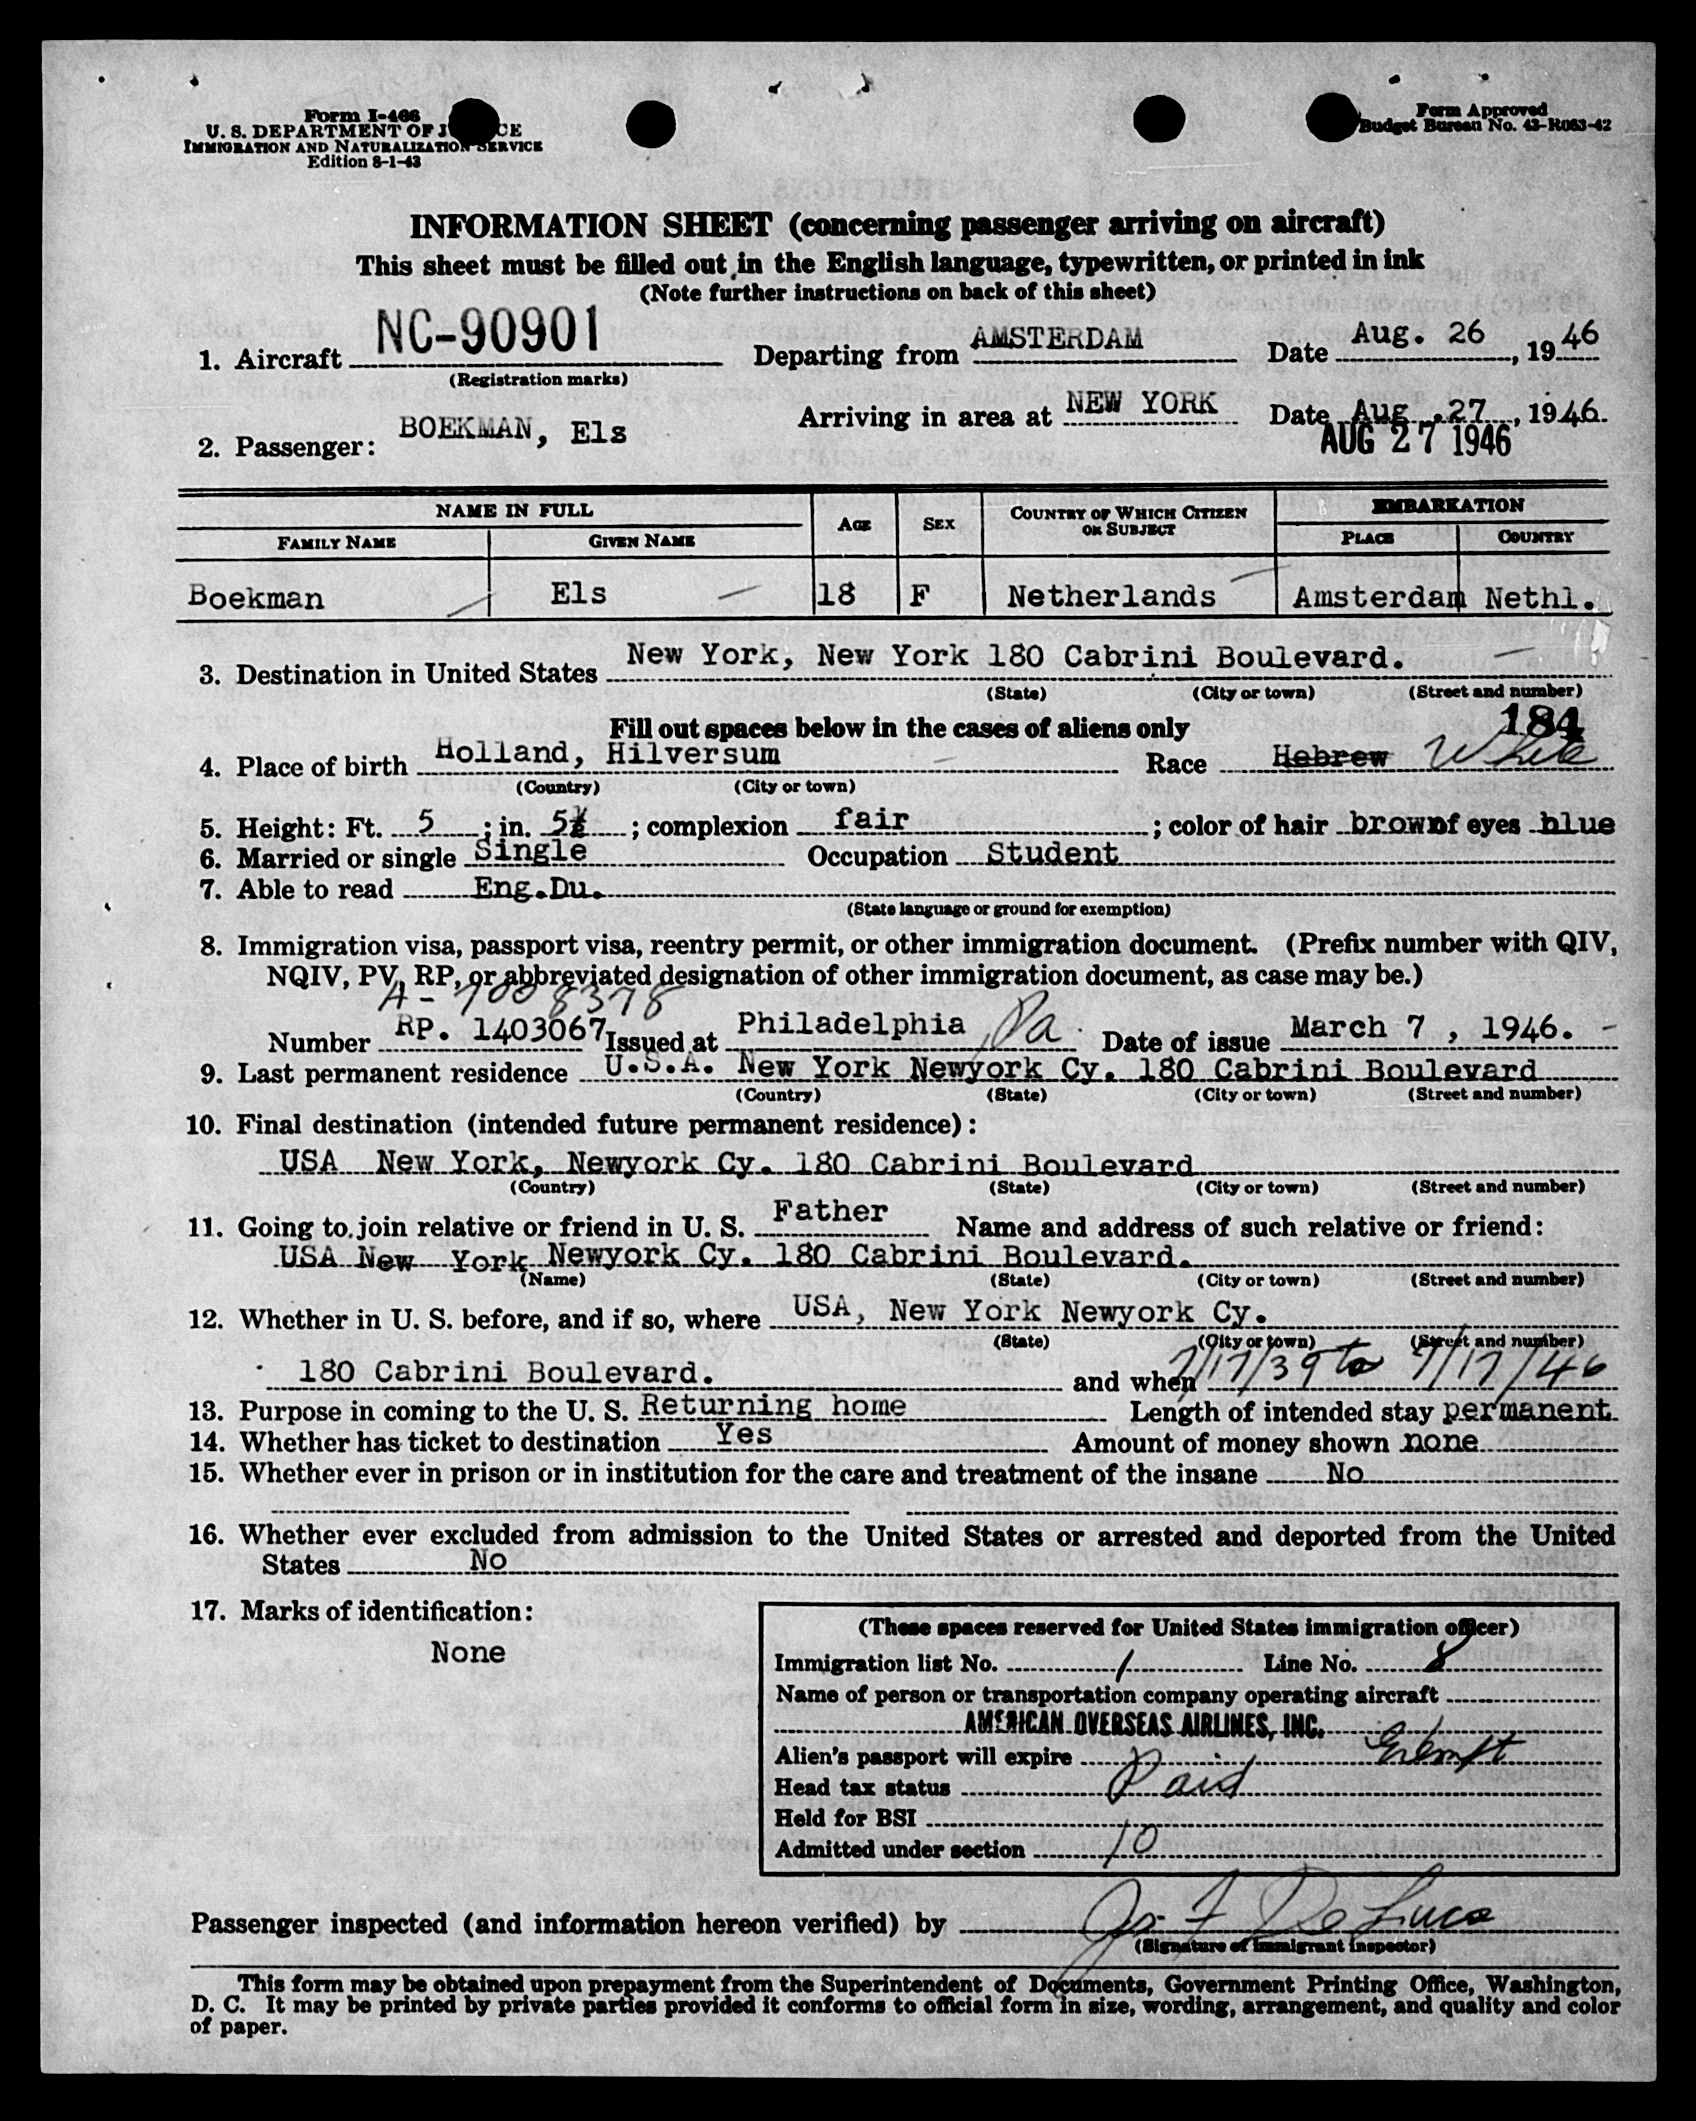 Form I-466
U. S. DEPARTMENT OF J CE
IMMIGRATION AND NATURALIZATION SERVICE
Edition 8-1-43
Form Approved
Budget Bureau No. 43-R063-42
INFORMATION SHEET (concerning passenger arriving on aircraft)
This sheet must be filled out in the English language, typewritten, or printed in ink
(Note further instructions on back of this sheet)
1. Aircraft NC-90901 Departing from AMSTERDAM Date Aug. 26, 1946
(Registration marks)
Arriving in area at NEW YORK Date Aug. 27, 1946.
AUG 27 1946
2. Passenger: BOEKMAN, Els
NAME IN FULL AGE SEX COUNTRY OF WHICH CITIZEN OR SUBJECT EMBARKATION
FAMILY NAME GIVEN NAME PLACE COUNTRY
Boekman Els 18 F Netherlands Amsterdam Nethl.
3. Destination in United States New York, New York 180 Cabrini Boulevard.
(State) (City or town) (Street and number)
184
Fill out spaces below in the cases of aliens only
4. Place of birth Holland, Hilversum Race Hebrew White
(Country) (City or town)
5. Height: Ft. 5; in. 5½; complexion fair; color of hair brown of eyes blue
6. Married or single Single Occupation Student
7. Able to read Eng.Du.
(State language or ground for exemption)
8. Immigration visa, passport visa, reentry permit, or other immigration document. (Prefix number with QIV,
NQIV, PV, RP, or abbreviated designation of other immigration document, as case may be.)
A-7008378
Number RP. 1403067 Issued at Philadelphia, Pa. Date of issue March 7, 1946. -
9. Last permanent residence U.S.A. New York Newyork Cy. 180 Cabrini Boulevard
(Country) (State) (City or town) (Street and number)
10. Final destination (intended future permanent residence):
USA New York, Newyork Cy. 180 Cabrini Boulevard
(Country) (State) (City or town) (Street and number)
11. Going to join relative or friend in U. S. Father Name and address of such relative or friend:
USA New York Newyork Cy. 180 Cabrini Boulevard.
(Name) (State) (City or town) (Street and number)
12. Whether in U. S. before, and if so, where USA, New York Newyork Cy.
(State) (City or town) (Street and number)
180 Cabrini Boulevard. and when 7/17/39 to 7/17/46
13. Purpose in coming to the U. S. Returning home Length of intended stay permanent.
14. Whether has ticket to destination Yes Amount of money shown none
15. Whether ever in prison or in institution for the care and treatment of the insane No
16. Whether ever excluded from admission to the United States or arrested and deported from the United
States No
17. Marks of identification:
None
(These spaces reserved for United States immigration officer)
Immigration list No. 1 Line No. 8
Name of person or transportation company operating aircraft
AMERICAN OVERSEAS AIRLINES, INC.
Alien's passport will expire Exempt
Head tax status Paid
Held for BSI
Admitted under section 10
Passenger inspected (and information hereon verified) by Jo. F. De Luca
(Signature of Immigrant Inspector)
This form may be obtained upon prepayment from the Superintendent of Documents, Government Printing Office, Washington,
D. C. It may be printed by private parties provided it conforms to official form in size, wording, arrangement, and quality and color
of paper.